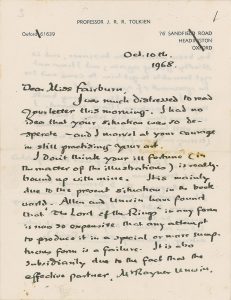 PROFESSOR J. R. R. TOLKIEN
Oxford 61639
76 SANDFIELD ROAD
HEADINGTON
OXFORD
Oct. 10th
1968.
Dear Miss Fairburn,
I was much distressed to read
your letter this morning. I had no
idea that your situation was so de-
sperate – and I marvel at your courage
in still practising your art.
I don't think your ill fortune (in
the matter of the illustrations) is really
bound up with mine. It is mainly
due to the present situation in the book
world. Allen and Unwin have found
that The Lord of the Rings in any form
is now so expensive that any attempt
to produce it in a special or more sump-
tuous form is a failure. It is also
subsidiarily due to the fact that the
effective partner, Mr Rayner Unwin,